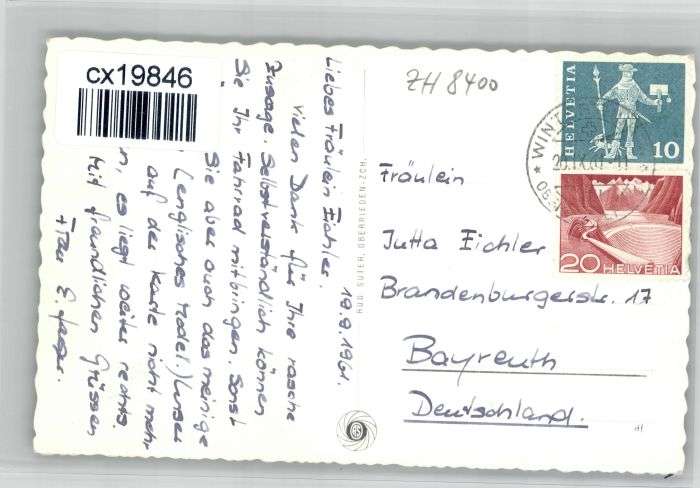 cx19846
ZH 8400
HELVETIA
10
20 HELVETIA
WINT
18.9.1961.
Liebes Fräulein Eichler.
vielen Dank für Ihre rasche
Zusage. Selbstverständlich können
Sie Ihr Fahrrad mitbringen. Sonst
Sie aber auch das meinige
(englisches Model.) Unser
auf der Karte nicht mehr
n, es liegt weiter rechts.
Mit freundlichen Grüssen
Frau E.
HUG. SUTER, OBERRIEDEN-ZCH.
Fräulein
Jutta Eichler
Brandenburgerstr. 17
Bayreuth
Deutschland.